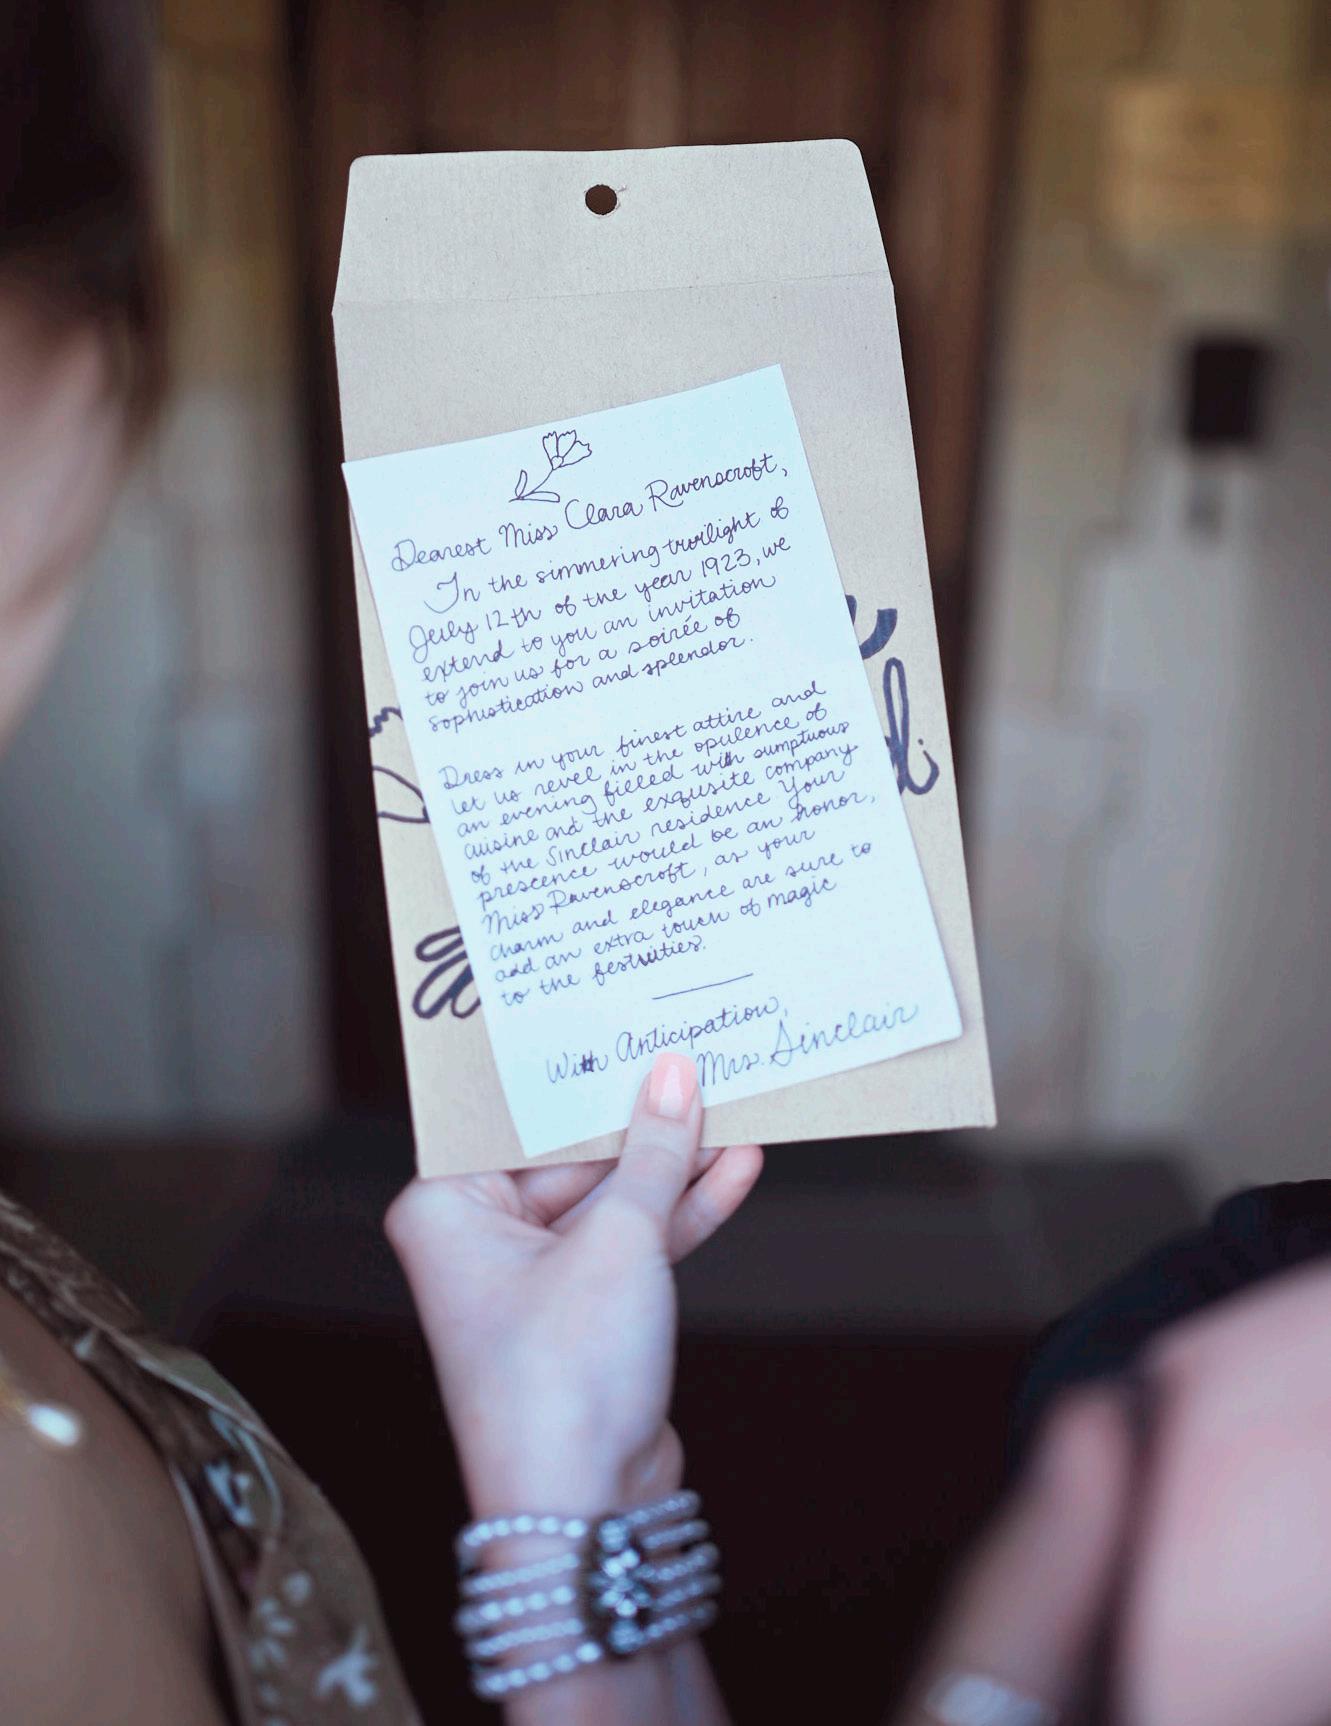 Dearest Miss Clara Ravenscroft,
In the simmering twilight of
July 12th of the year 1923, we
extend to you an invitation
to join us for a soirée of
sophistication and splendor.
Dress in your finest attire and
let us revel in the opulence of
an evening filled with sumptuous
cuisine and the exquisite company
of the Sinclair residence. Your
prescence would be an honor,
Miss Ravenscroft, as your
charm and elegance are sure to
add an extra touch of magic
to the festivities.
With Anticipation,
Mrs. Sinclair